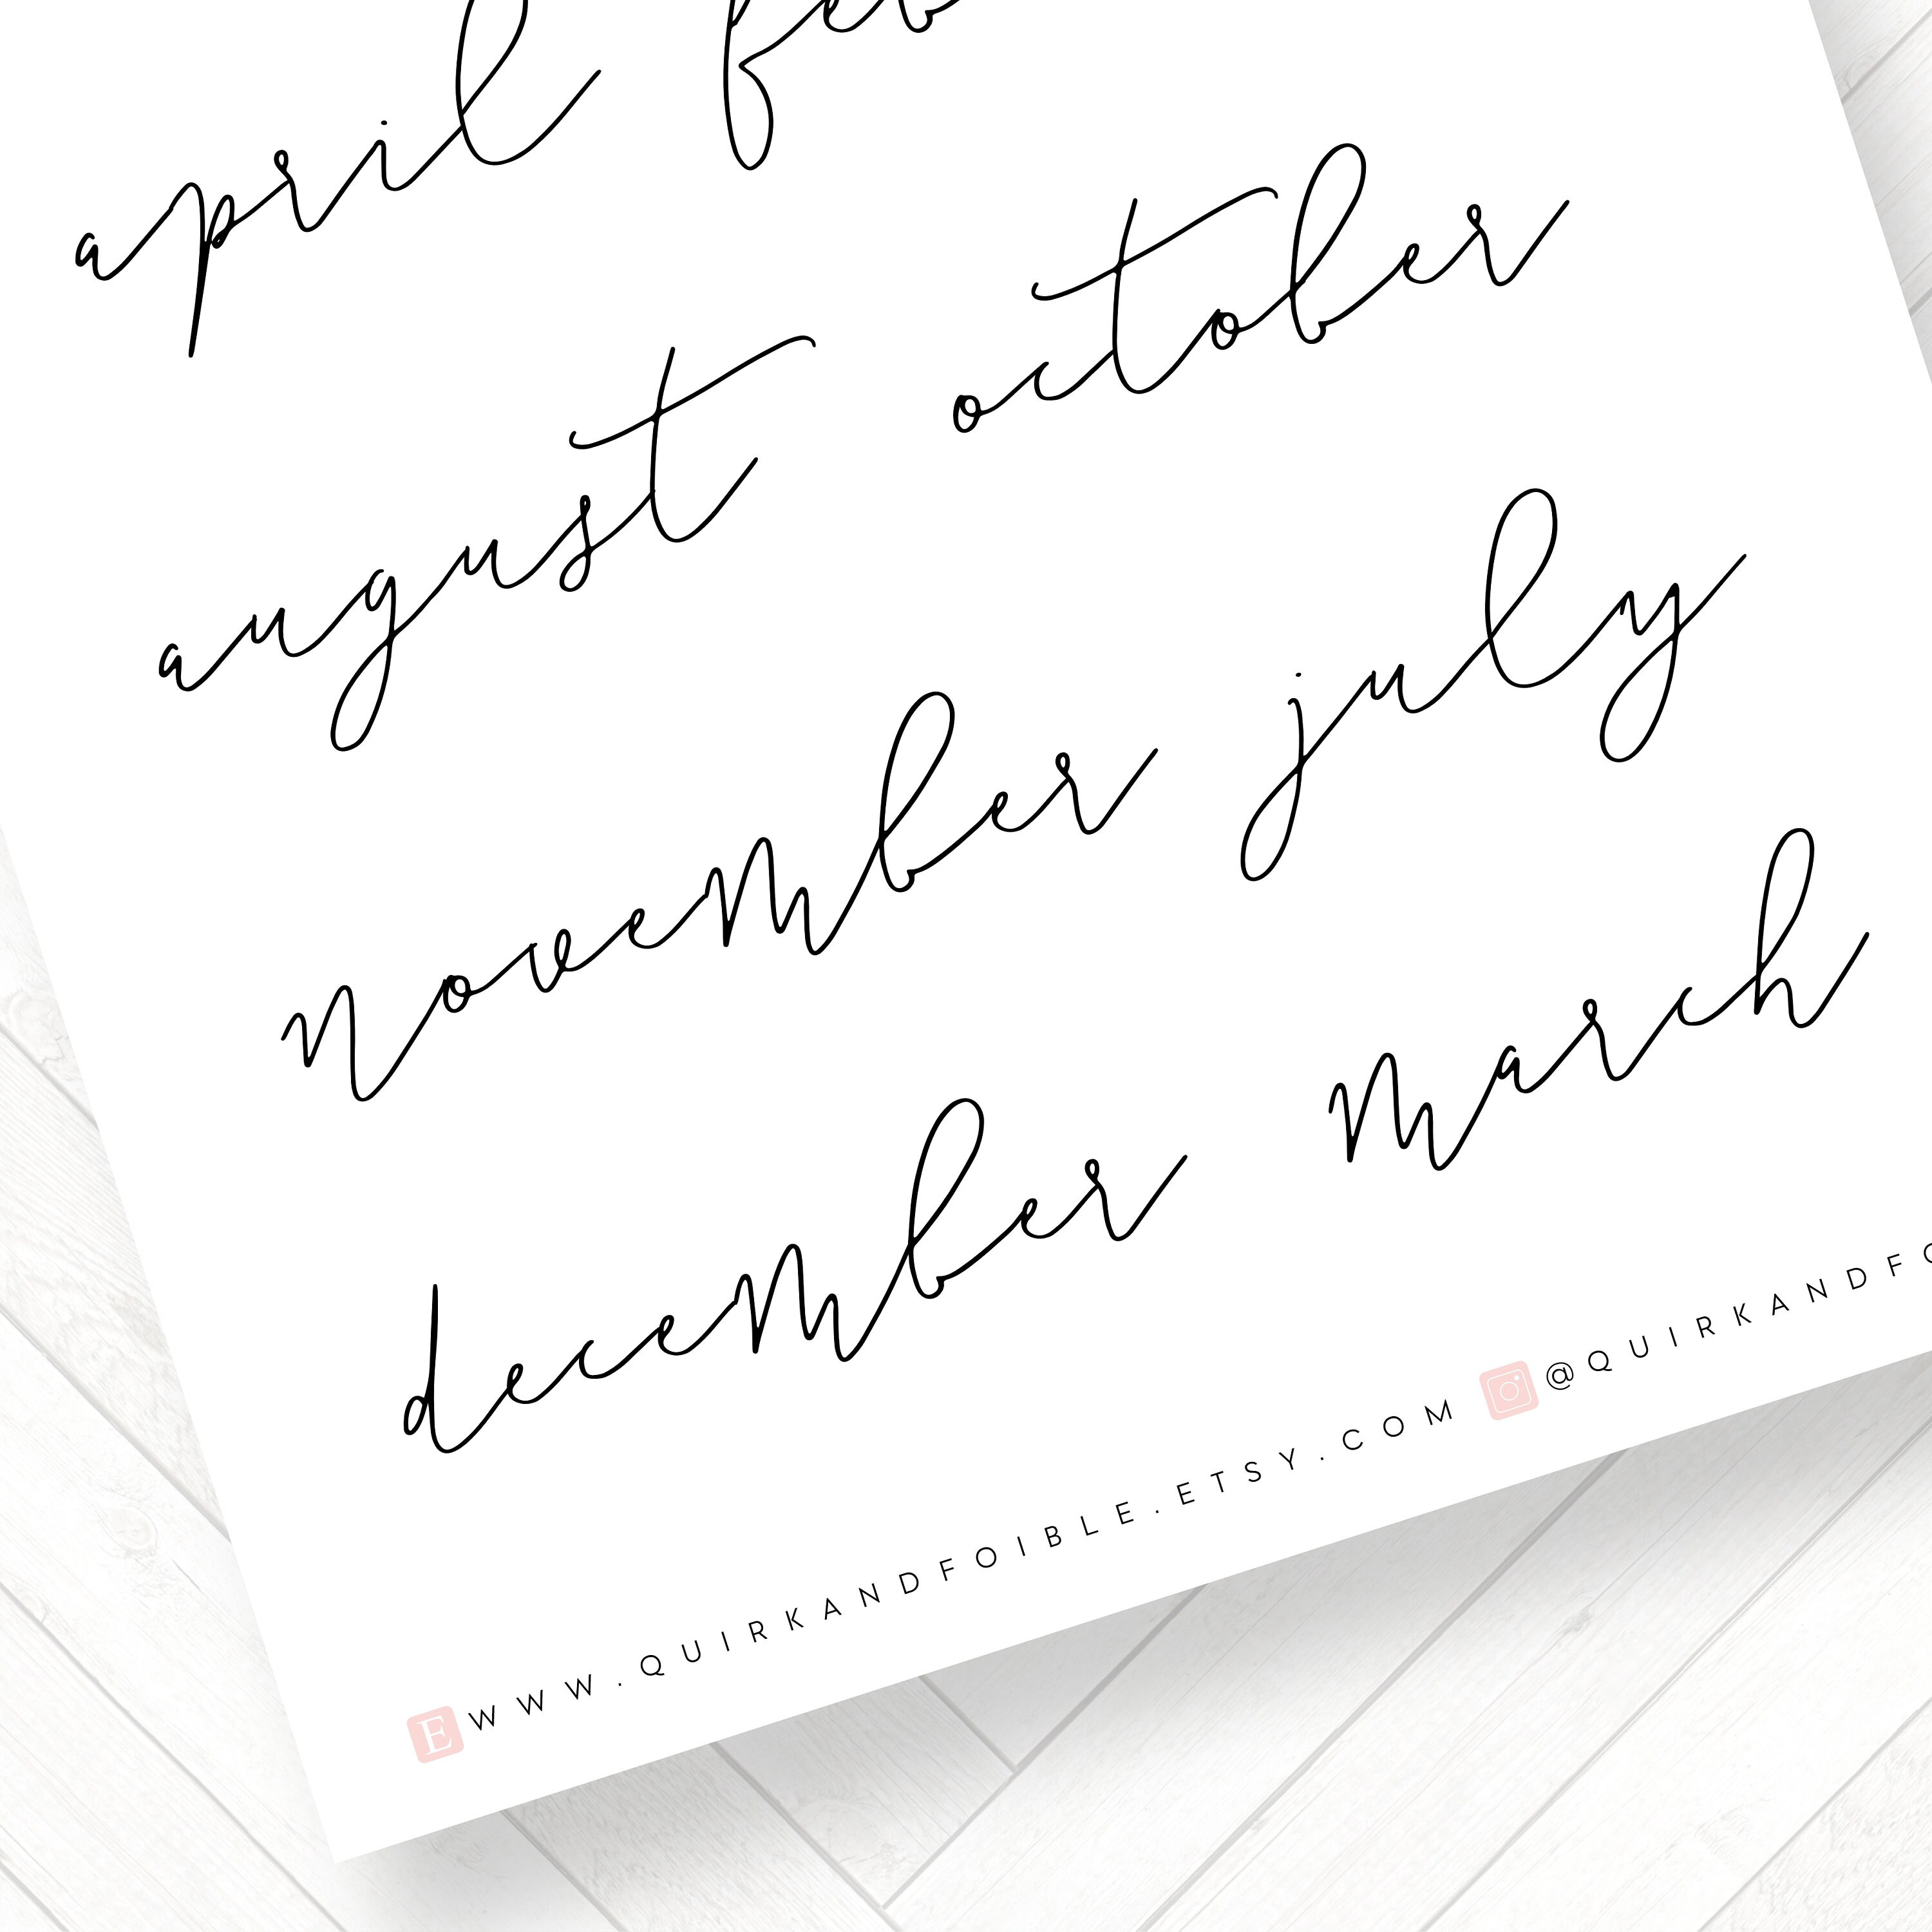 april feb
august october
november july
december march
E WWW.QUIRKANDFOIBLE.ETSY.COM @QUIRKANDFO